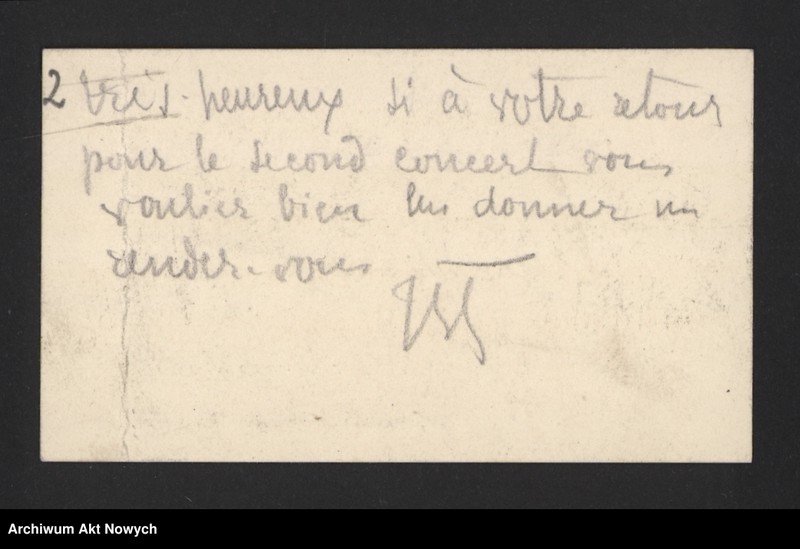 2 très-heureux si à votre retour
pour le second concert vous
vouliez bien lui donner un
rendez-vous
Archiwum Akt Nowych